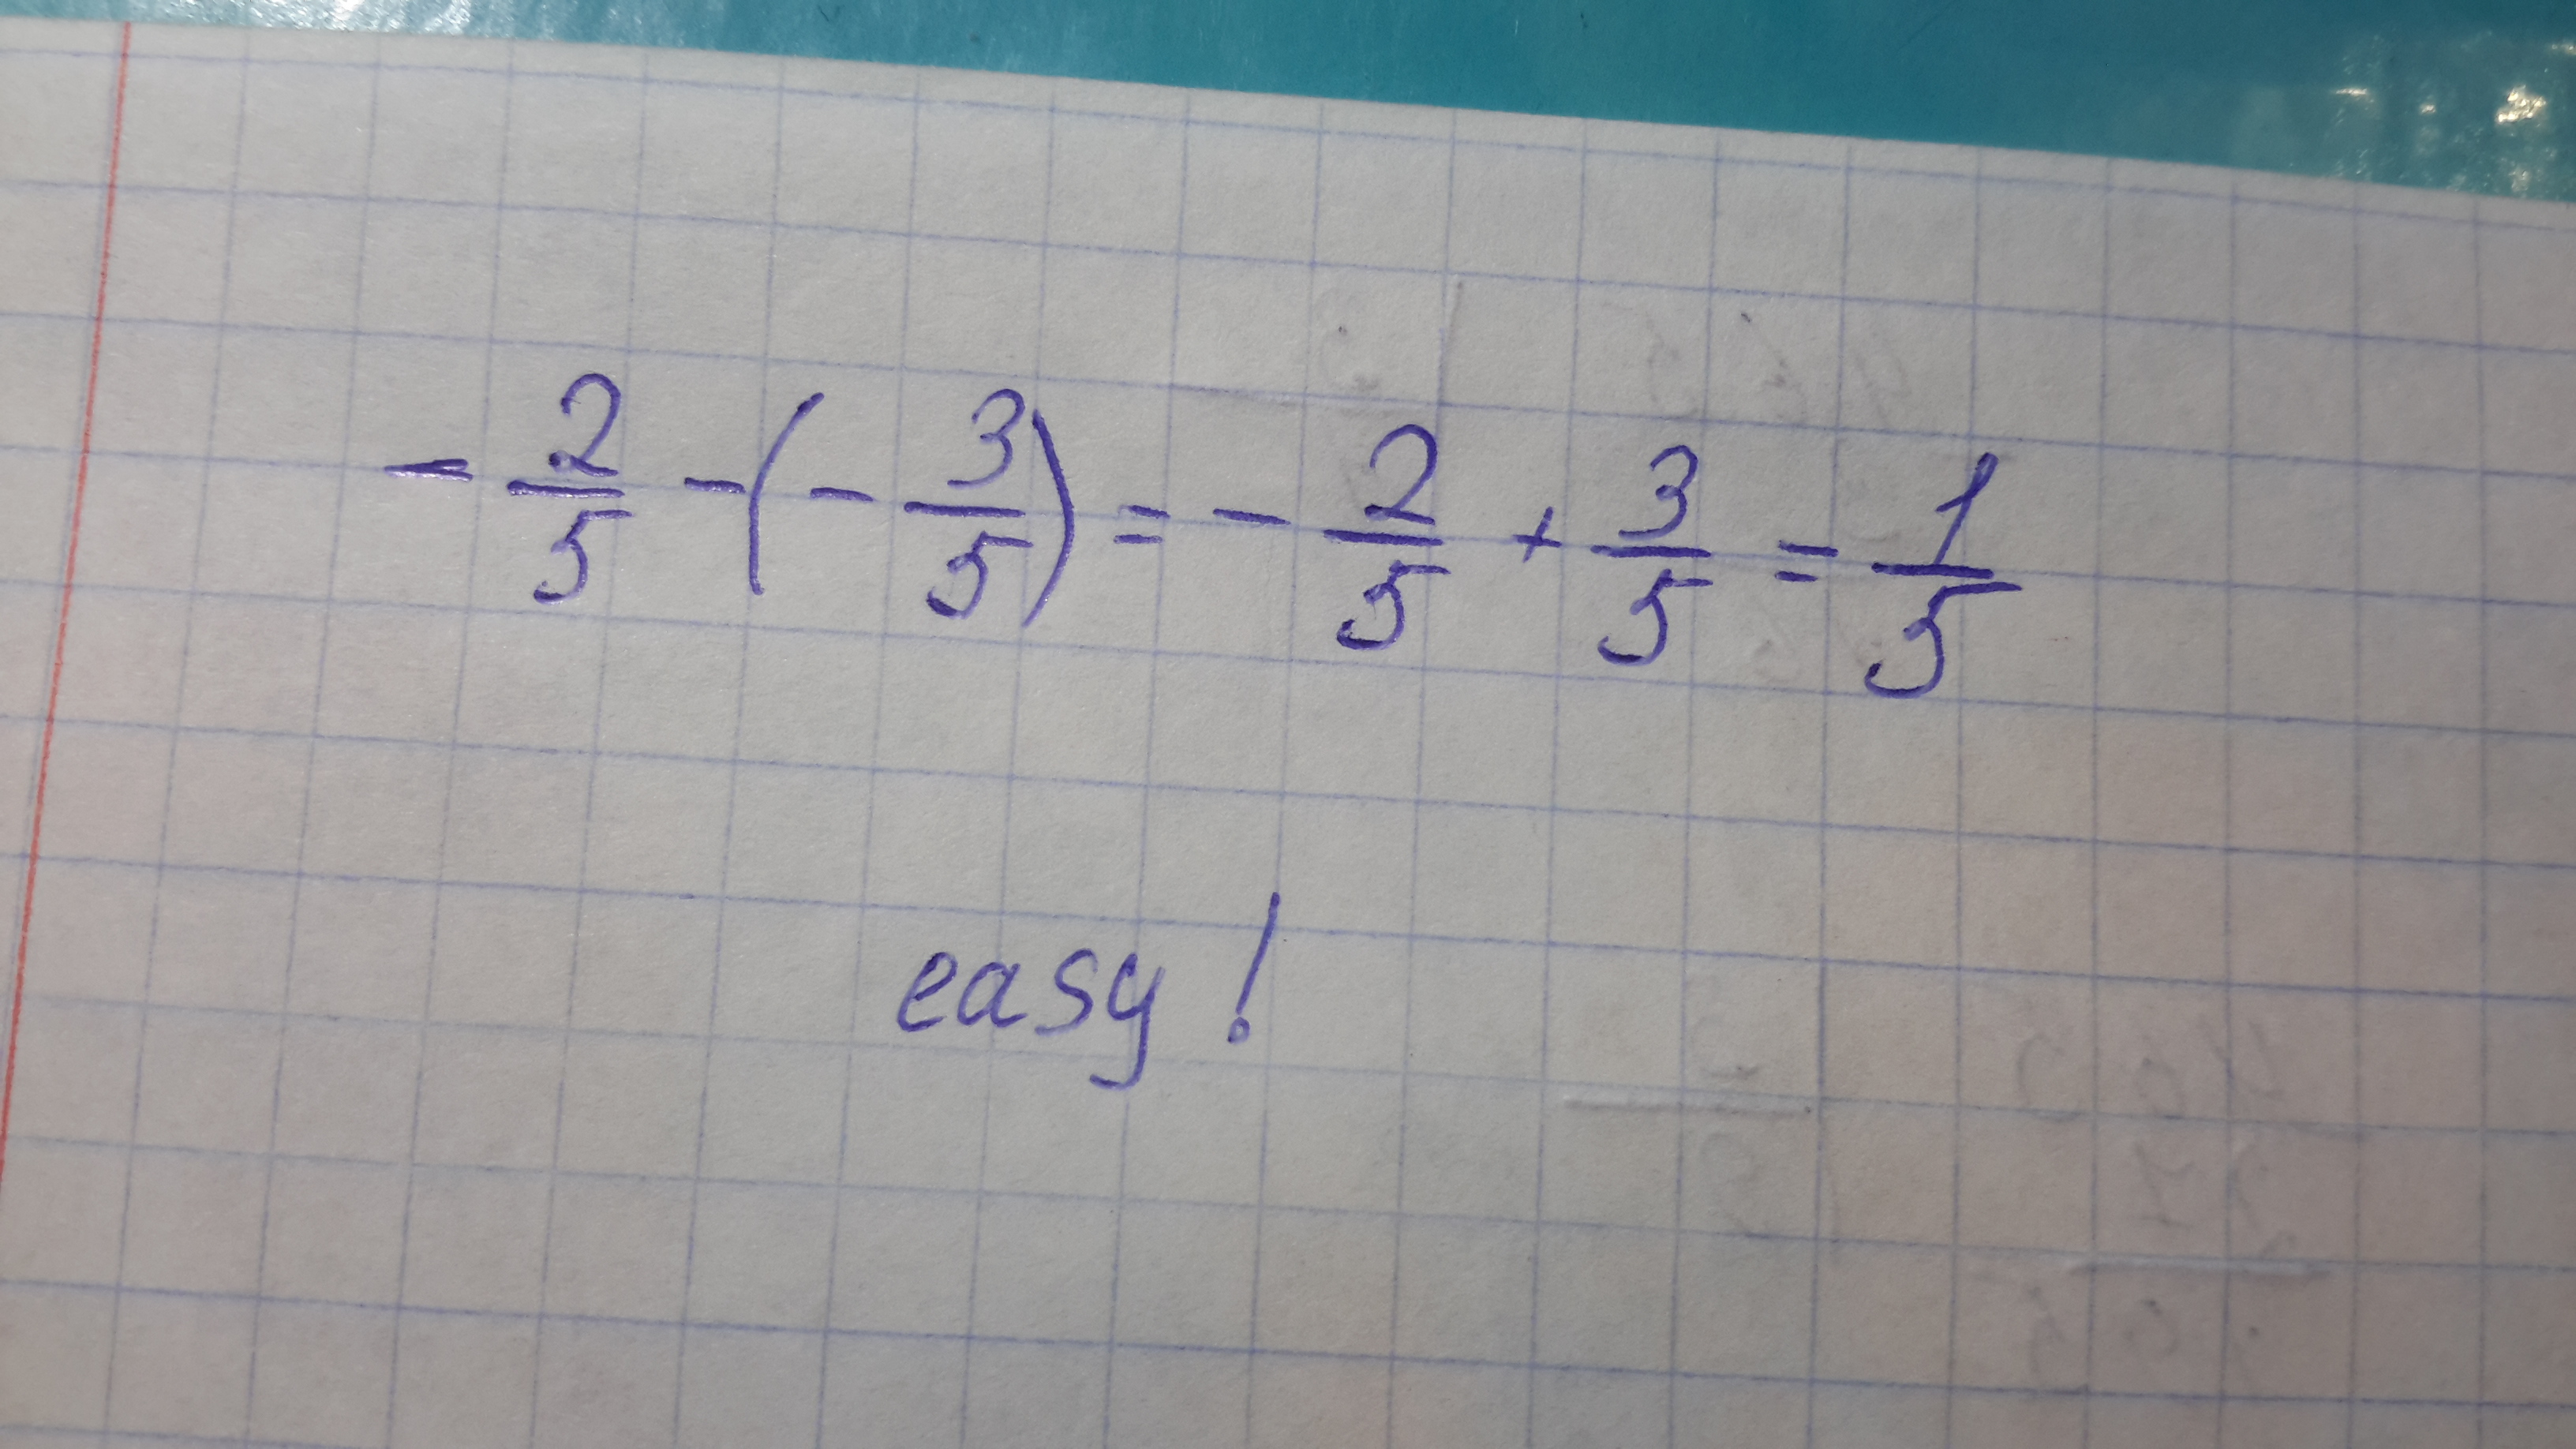 - 2/5 - (- 3/5) = - 2/5 + 3/5 = 1/5
easy!